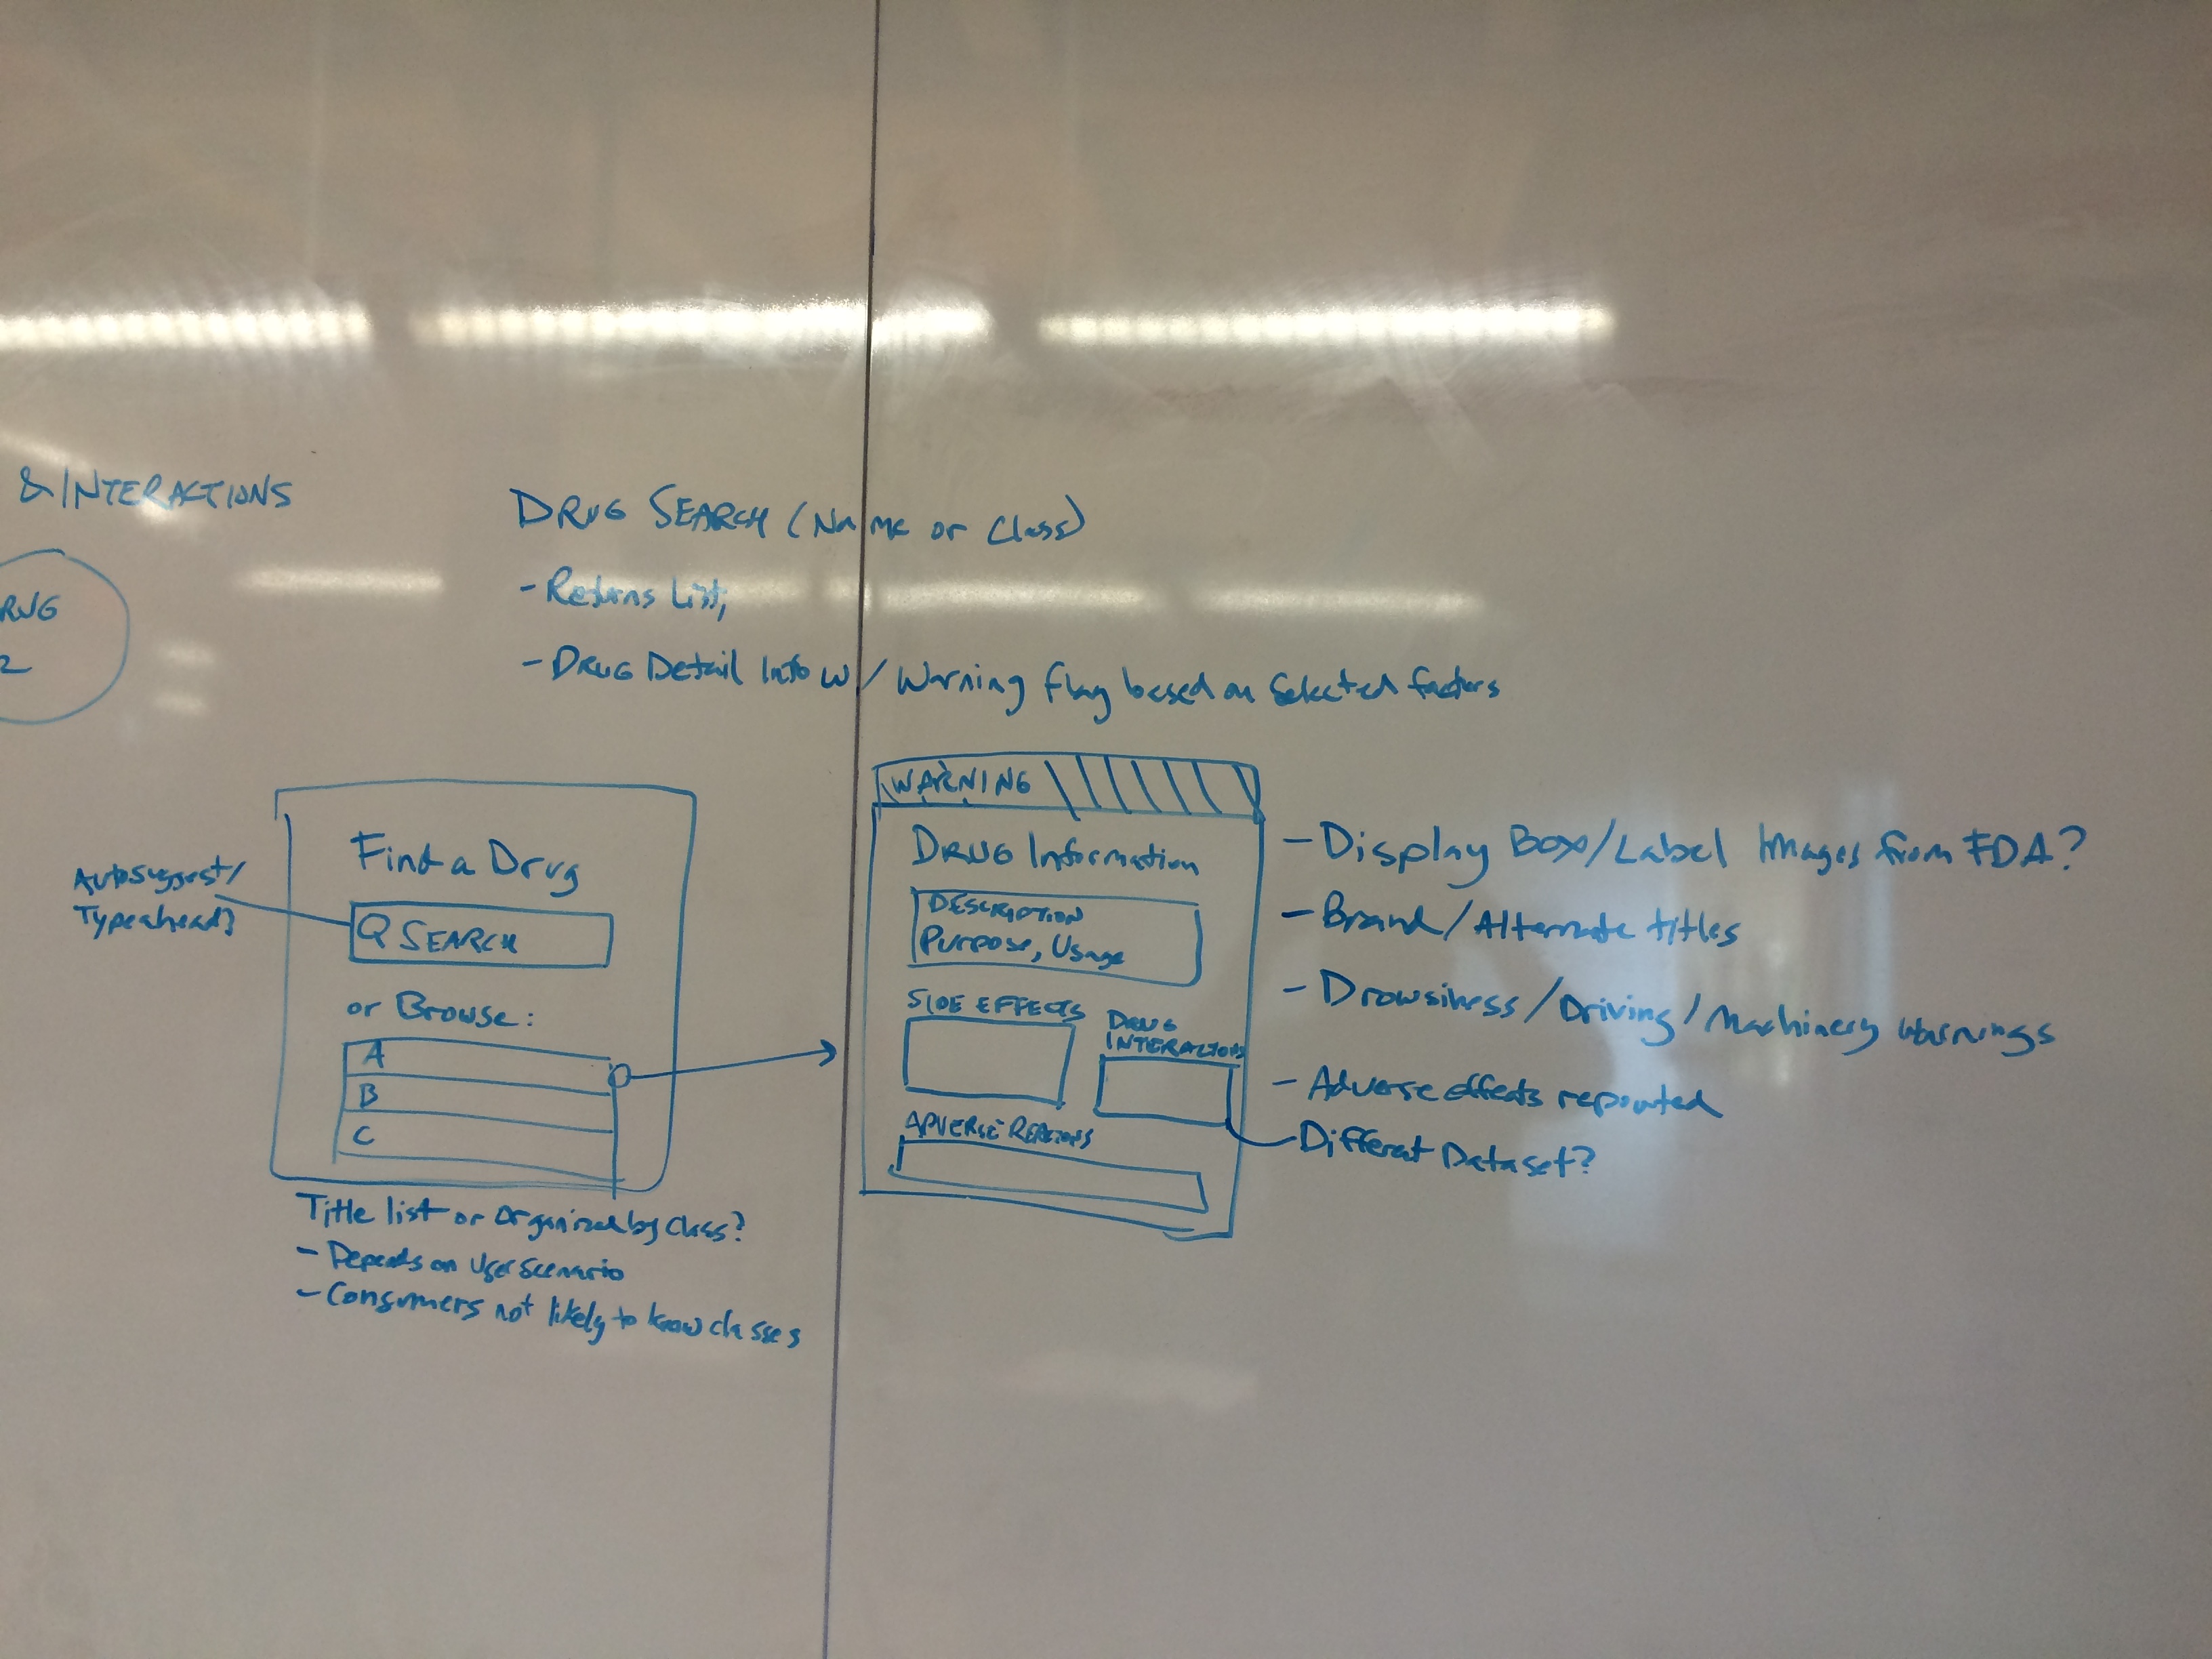 & INTERACTIONS
RUG
2
DRUG SEARCH (Name or Class)
- Returns List,
- DRUG Detail Info w/ Warning flag based on Selected factors
Autosuggest/
Typeahead?
Find a Drug
SEARCH
or Browse:
A
B
C
Title list or organized by class?
- Depends on User Scenario
- Consumers not likely to know classes
WARNING
DRUG Information
DESCRIPTION
Purpose, Usage
SIDE EFFECTS
DRUG
INTERACTIONS
ADVERSE REACTIONS
- Display Box/Label Images from FDA?
- Brand/Alternate titles
- Drowsiness/Driving/Machinery Warnings
- Adverse effects reported
Different Dataset?